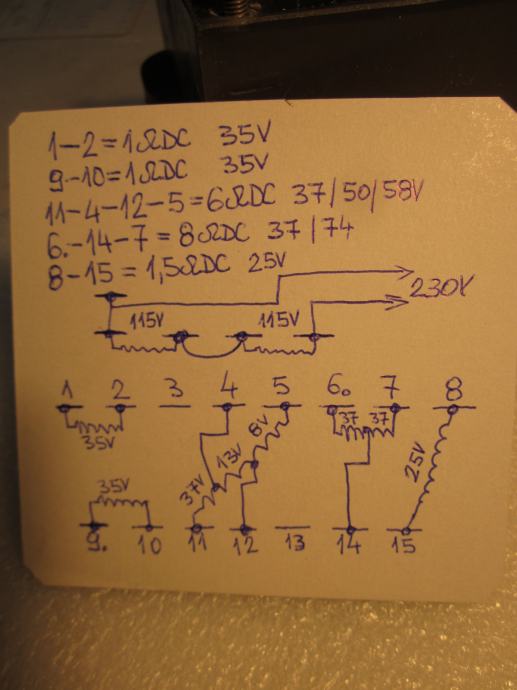 1-2=1ΩDC 35V
9-10=1ΩDC 35V
11-4-12-5=6ΩDC 37/50/58V
6.-14-7=8ΩDC 37/74
8-15=1,5ΩDC 25V
115V 115V 230V
1 2 3 4 5 6. 7 8
35V 37V 13V 8V 37 37 25V
35V
9. 10 11 12 13 14 15